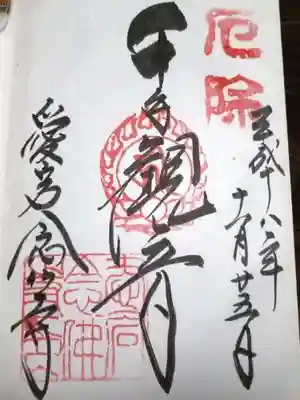 厄除
平成十八年
十一月廿五日
千手観音
愛宕念仏寺